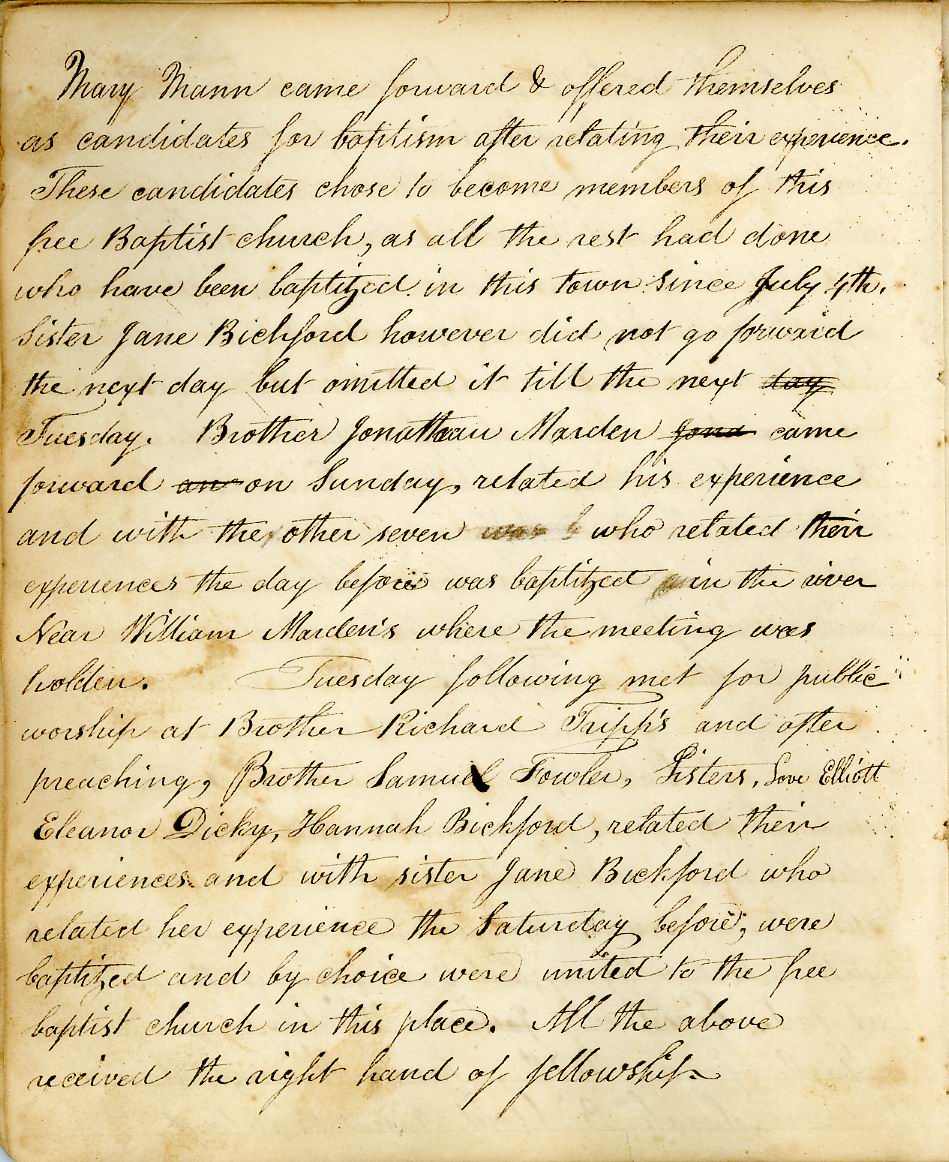 Mary Mann came forward & offered themselves
as candidates for baptism after relating their experience.
These candidates chose to become members of this
free Baptist church, as all the rest had done
who have been baptized in this town since July 4th.
Sister Jane Bickford however did not go forward
the next day but omitted it till the next day
Tuesday. Brother Jonathan Marden Jona came
forward an on Sunday, related his experience
and with the other seven was who related their
experiences the day before was baptized in the river
Near William Marden's where the meeting was
holden. Tuesday following met for public
worship at Brother Richard Tripp's and after
preaching, Brother Samuel Fowler, Sisters, Love Elliott
Eleanor Dicky, Hannah Bickford, related their
experiences and with sister Jane Bickford who
related her experience the Saturday before, were
baptized and by choice were united to the free
baptist church in this place. All the above
received the right hand of fellowship